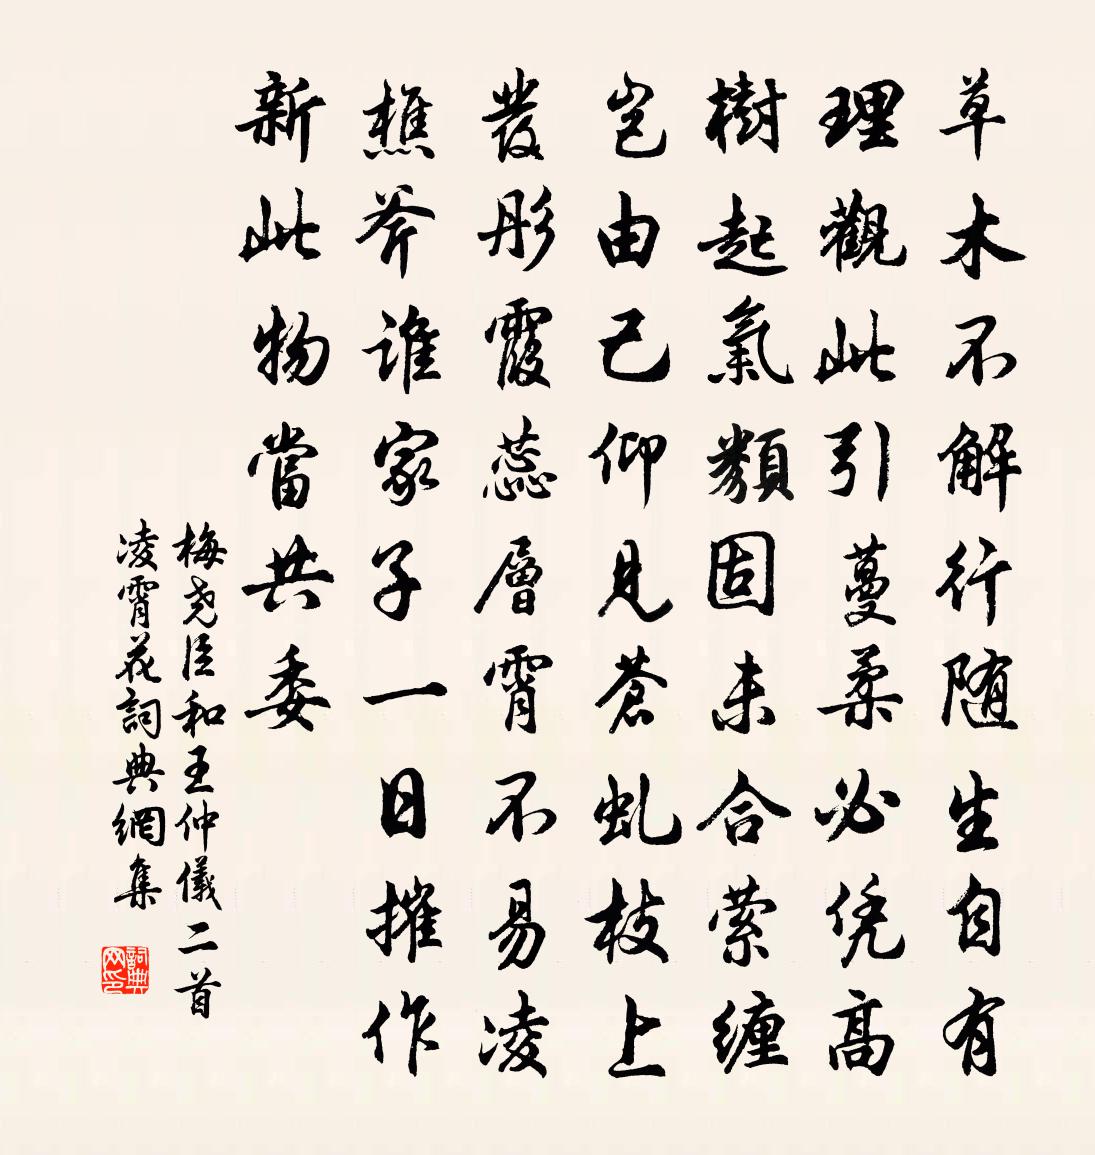 草木不解行随生自有
理觀此引蔓柔必凭高
樹起氣類固未合萦缠
岂由己仰見蒼虬枝上
發彤霞蕊層霄不易凌
樵斧谁家子一日摧作
新此物當共委
梅尧臣和王仲儀二首
凌霄花詞典網集
詞典网印